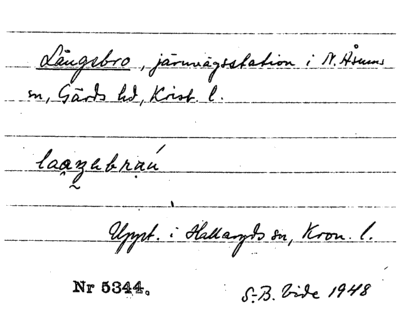 Långebro, järnvägsstation i N. Åsums
sn, Gärds hd, Krist. l.
Uppt. i Hallaryds sn, Kron. l.
Nr 5344.
S.-B. Vide 1948